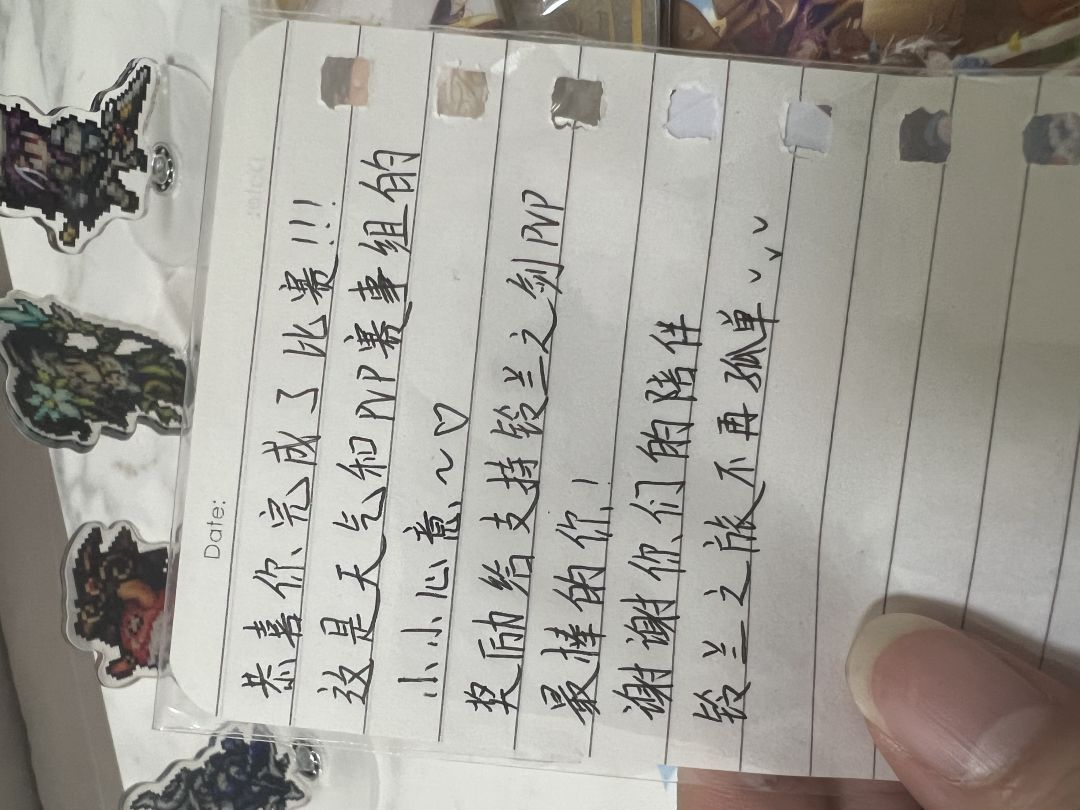 Date:
恭喜你完成了比赛!!!
这是天气和PVP赛事组的
小小心意~♡
奖励给支持铃兰之剑PVP
最棒的你!
谢谢你们的陪伴
铃兰之旅不再孤单